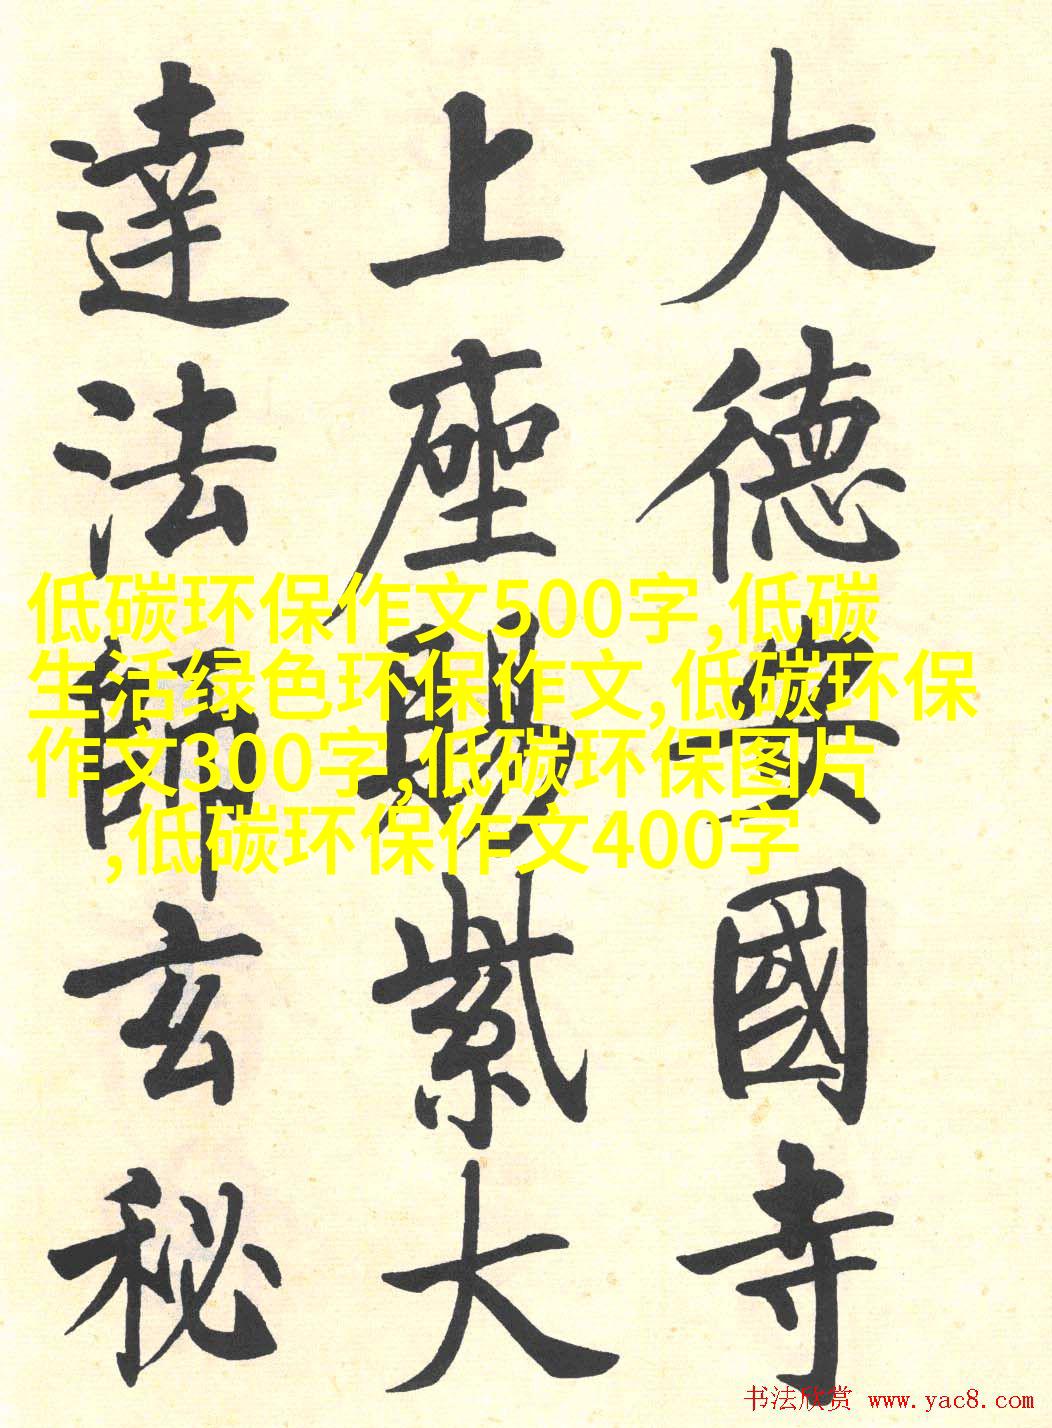 大德安國寺
上座賜紫大
達法師玄秘
低碳环保作文500字,低碳
生活绿色环保作文,低碳环保
作文300字,低碳环保图片
,低碳环保作文400字
书法欣赏 www.yac8.com